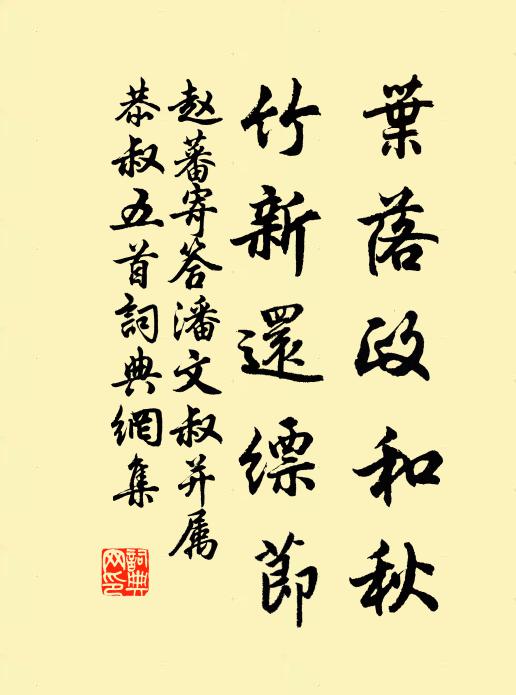 葉落政和秋
竹新還縹節
赵蕃寄答潘文叔并属
恭叔五首詞典網集
詞典
网印